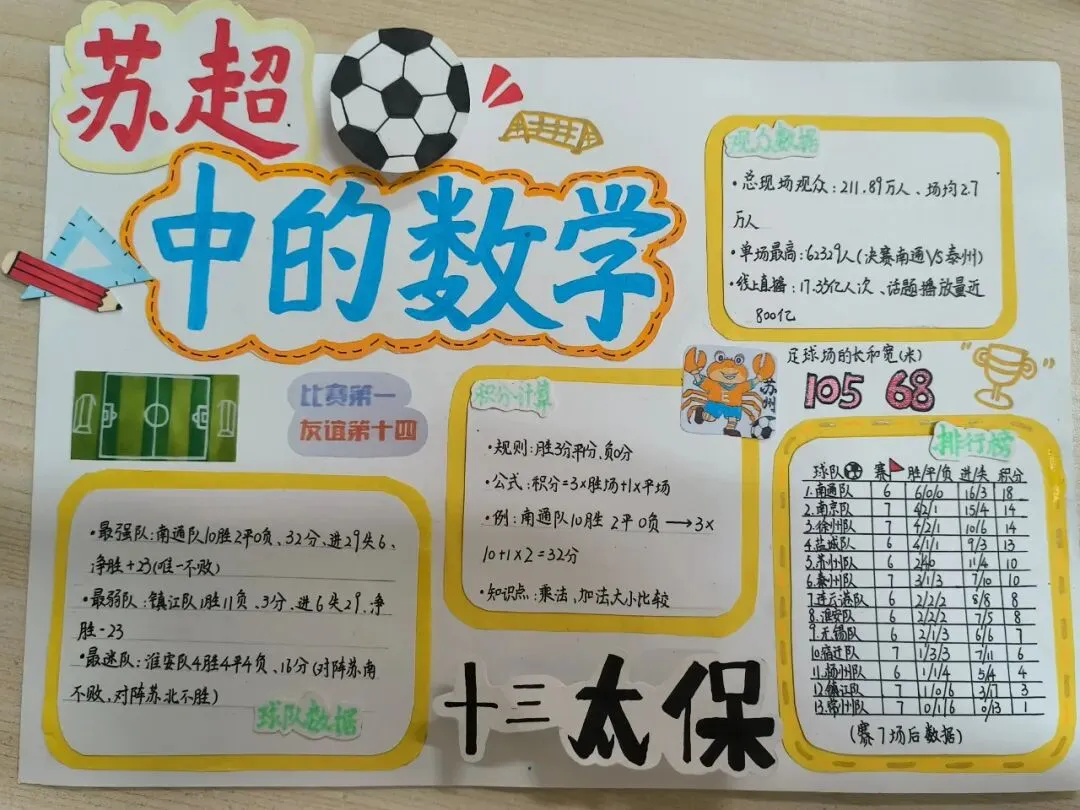 苏超
中的数学
观众数据
·总现场观众:211.89万人、场均2.7
万人
·单场最高:62329人(决赛南通VS泰州)
·线上直播:17.33亿人次、话题播放量近
800亿
足球场的长和宽(米)
105 68
苏州
比赛第一
友谊第十四
积分计算
·规则:胜3分平1分、负0分
·公式:积分=3×胜场+1×平场
·例:南通队10胜 2平 0负→3×
10+1×2=32分
·知识点:乘法、加法、大小比较
·最强队:南通队10胜2平0负、32分、进29失6、
净胜+23(唯一不败)
·最弱队:镇江队1胜11负、3分、进6失29、净
胜-23
·最迷队:淮安队4胜4平4负、16分(对阵苏南
不败,对阵苏北不胜)
球队数据
十三太保
排行榜
球队 赛 胜/平/负 进/失 积分
1.南通队 6 6/0/0 16/3 18
2.南京队 7 4/2/1 15/4 14
3.徐州队 7 4/2/1 10/6 14
4.盐城队 6 4/1/1 9/3 13
5.苏州队 6 2/4/0 11/4 10
6.泰州队 7 3/1/3 7/10 10
7.连云港队 6 2/2/2 8/8 8
8.淮安队 6 2/2/2 7/5 8
9.无锡队 6 2/1/3 6/6 7
10.宿迁队 7 1/3/3 7/11 6
11.扬州队 6 1/1/4 5/4 4
12.镇江队 7 1/0/6 3/17 3
13.常州队 7 0/1/6 0/13 1
(赛7场后数据)